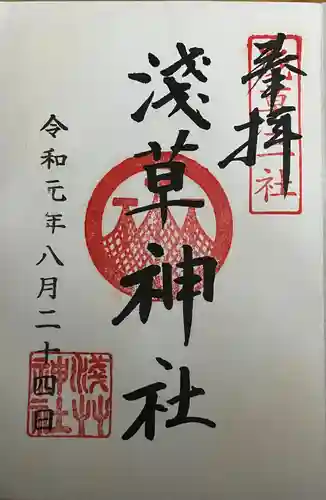 奉拝
淺草神社
令和元年八月二十四日
淺艸
神社